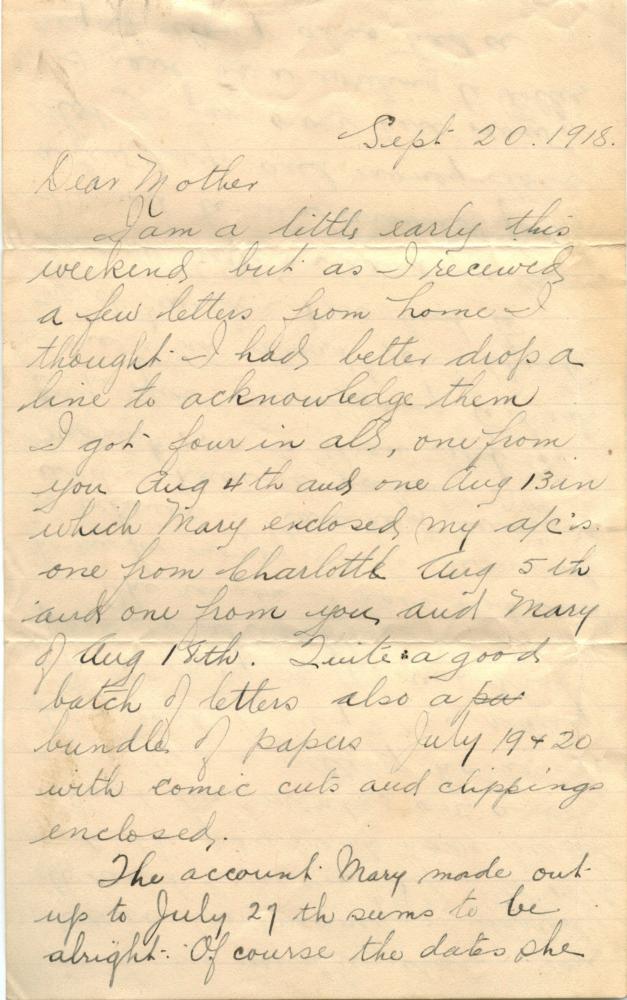 Sept 20. 1918.
Dear Mother
I am a little early this
weekend but as I received
a few letters from home I
thought I had better drop a
line to acknowledge them
I got four in all, one from
you Aug 4th and one Aug 13 in
which Mary enclosed my a/c's.
one from Charlotte Aug 5th
and one from you and Mary
of Aug 18th. Quite a good
batch of letters also a
bundle of papers July 19 & 20
with comic cuts and clippings
enclosed.
The account Mary made out
up to July 27th seems to be
alright. Of course the dates she